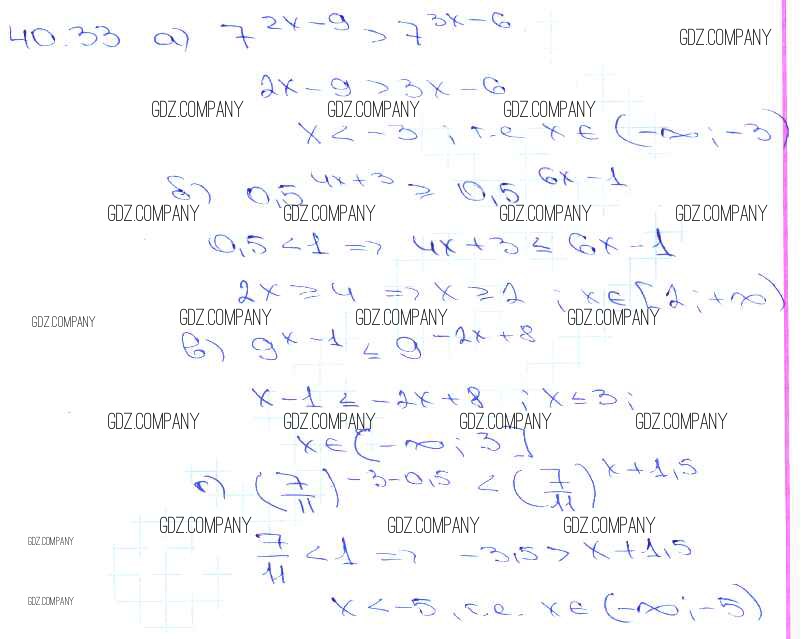 40.33 а) 7^(2x-9) > 7^(3x-6)
GDZ.COMPANY
2x-9 > 3x-6
GDZ.COMPANY GDZ.COMPANY GDZ.COMPANY
x < -3 ; т.е. x ∈ (-∞; -3)
б) 0,5^(4x+3) ≥ 0,5^(6x-1)
GDZ.COMPANY GDZ.COMPANY GDZ.COMPANY GDZ.COMPANY
0,5 < 1 => 4x+3 ≤ 6x-1
2x ≥ 4 => x ≥ 2 ; x ∈ [2; +∞)
GDZ.COMPANY GDZ.COMPANY GDZ.COMPANY GDZ.COMPANY
в) 9^(x-1) ≤ 9^(-2x+8)
x-1 ≤ -2x+8 ; x ≤ 3;
GDZ.COMPANY GDZ.COMPANY GDZ.COMPANY GDZ.COMPANY
x ∈ (-∞; 3]
г) (7/11)^(-3-0,5) < (7/11)^(x+1,5)
GDZ.COMPANY GDZ.COMPANY GDZ.COMPANY
GDZ.COMPANY
7/11 < 1 => -3,5 > x+1,5
GDZ.COMPANY
x < -5, т.е. x ∈ (-∞; -5)